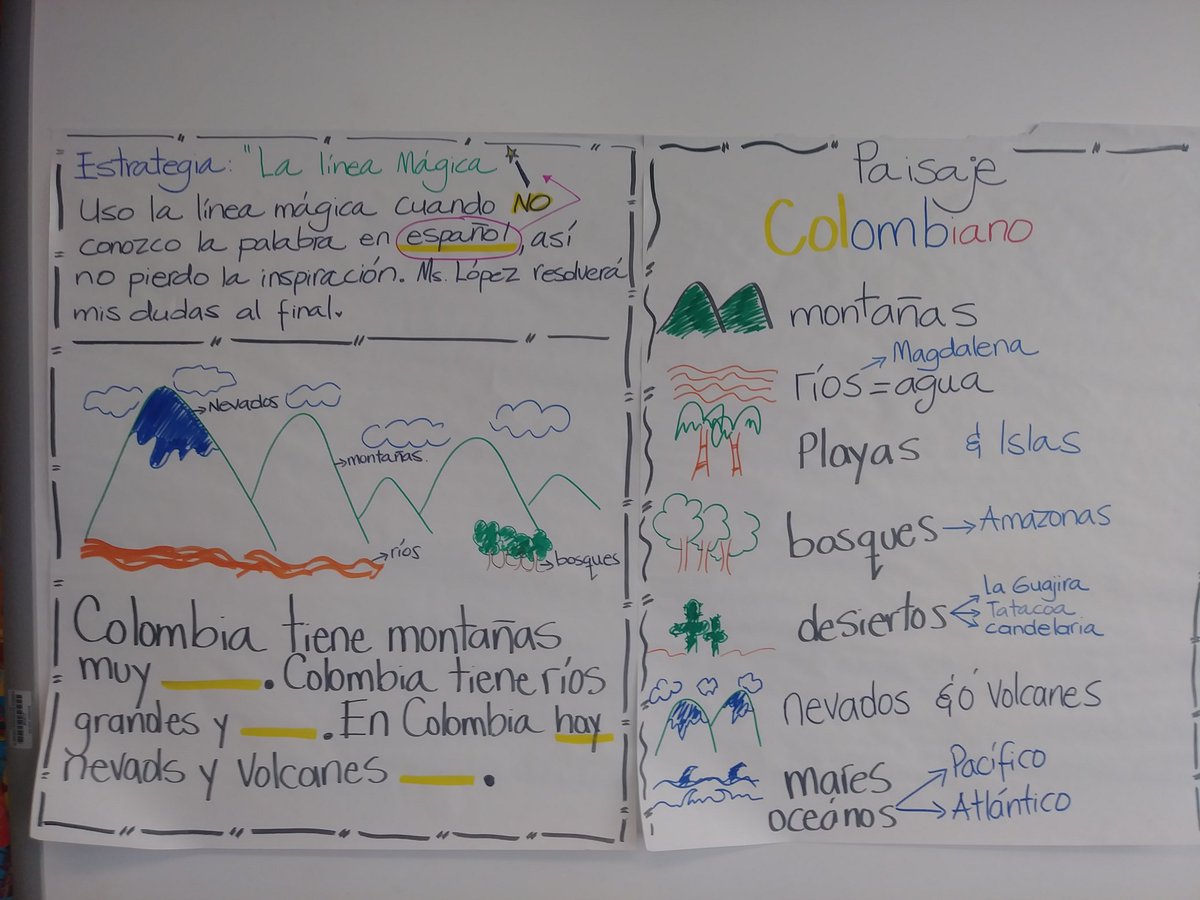 Estrategia: "La línea Mágica
Uso la línea mágica cuando NO
conozco la palabra en español, así
no pierdo la inspiración. Ms. López resolverá
mis dudas al final.
Nevados
montañas.
ríos
bosques
Colombia tiene montañas
muy ____. Colombia tiene ríos
grandes y ____. En Colombia hay
nevads y volcanes ____.
Paisaje
Colombiano
montañas
Magdalena
ríos = agua
Playas & Islas
bosques → Amazonas
la Guajira
desiertos Tatacoa
candelaria
nevados &ó Volcanes
mares Pacífico
oceános Atlántico